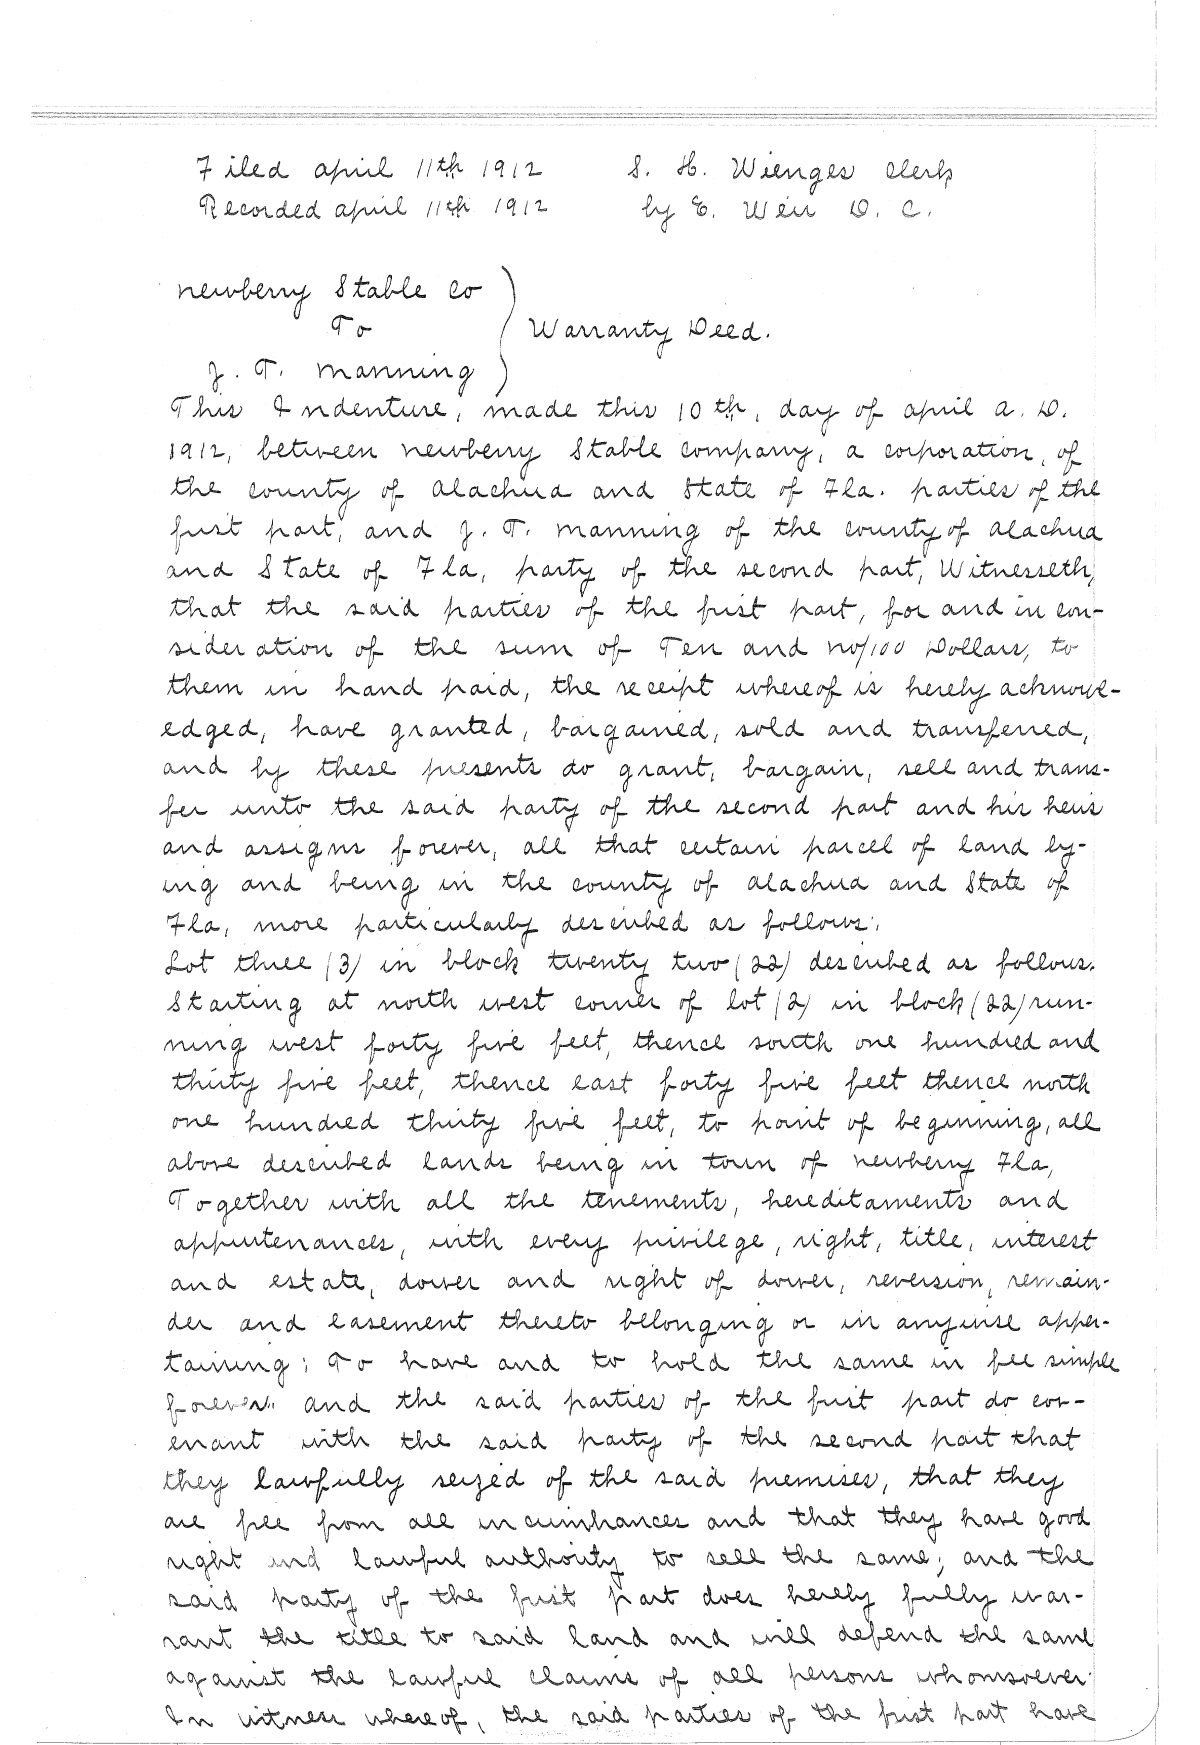 Filed april 11th 1912 S. H. Wienges Clerk
Recorded april 11th 1912 by E. Weir D. C.
newberry Stable Co
To
Warranty Deed.
J. T. manning
This Indenture, made this 10th, day of april a. D.
1912, between newberry Stable company, a corporation, of
the county of alachua and State of Fla. parties of the
first part, and J. T. manning of the county of alachua
and State of Fla, party of the second part, Witnesseth,
that the said parties of the first part, for and in con-
sideration of the sum of Ten and no/100 Dollars, to
them in hand paid, the receipt whereof is hereby acknowl-
edged, have granted, bargained, sold and transferred,
and by these presents do grant, bargain, sell and trans-
fer unto the said party of the second part and his heirs
and assigns forever, all that certain parcel of land ly-
ing and being in the county of alachua and State of
Fla, more particularly described as follows:
Lot three (3) in block twenty two (22) described as follows.
Starting at north west corner of lot (2) in block (22) run-
ning west forty five feet, thence south one hundred and
thirty five feet, thence east forty five feet thence north
one hundred thirty five feet, to point of beginning, all
above described lands being in town of newberry Fla,
Together with all the tenements, hereditaments and
appurtenances, with every privilege, right, title, interest
and estate, dower and right of dower, reversion, remain-
der and easement thereto belonging or in anywise apper-
taining; To have and to hold the same in fee simple
forever. and the said parties of the first part do cov-
enant with the said party of the second part that
they lawfully seized of the said premises, that they
are free from all incumbrances and that they have good
right and lawful authority to sell the same; and the
said party of the first part does hereby fully war-
rant the title to said land and will defend the same
against the lawful claims of all persons whomsoever
In witness whereof, the said parties of the first part have